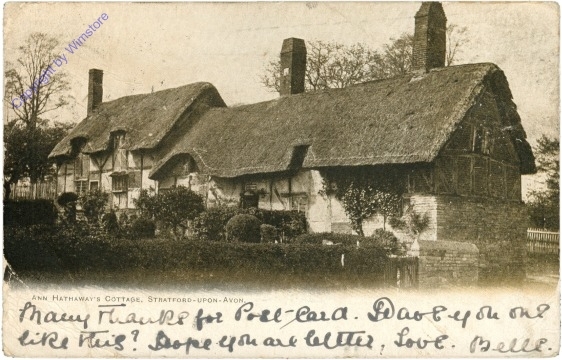 Copyright by Wimstore
ANN HATHAWAY'S COTTAGE, STRATFORD-UPON-AVON.
Many thanks for Post-card. Have you one
like this? Hope you are better, Love. Belle.